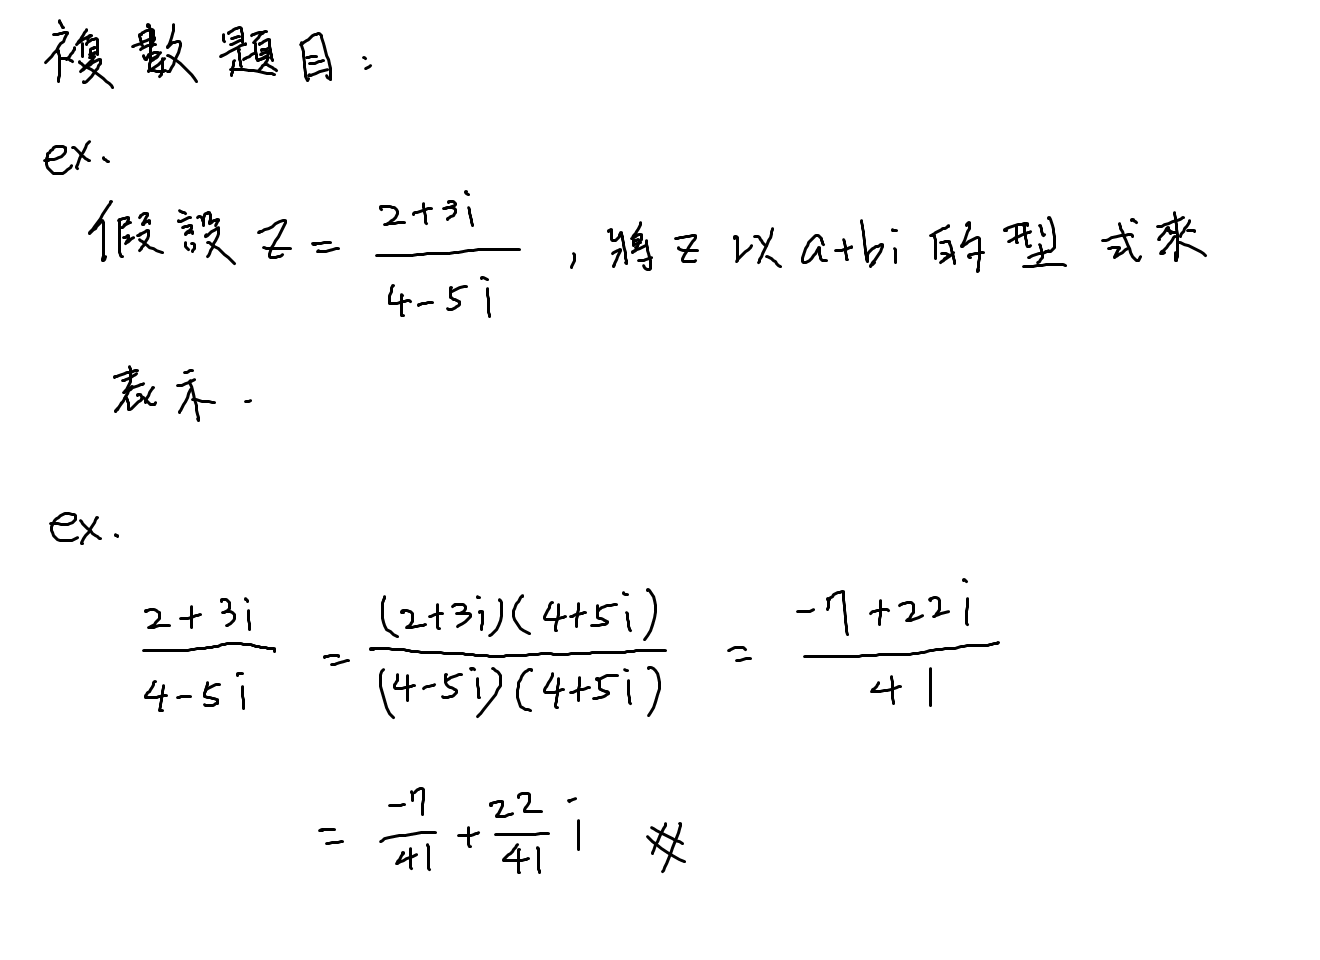 複數題目:
ex.
假設 z = (2+3i)/(4-5i) , 將 z 以 a+bi 的型式來
表示.
ex.
(2+3i)/(4-5i) = ((2+3i)(4+5i))/((4-5i)(4+5i)) = (-7+22i)/41
= -7/41 + 22/41 i #